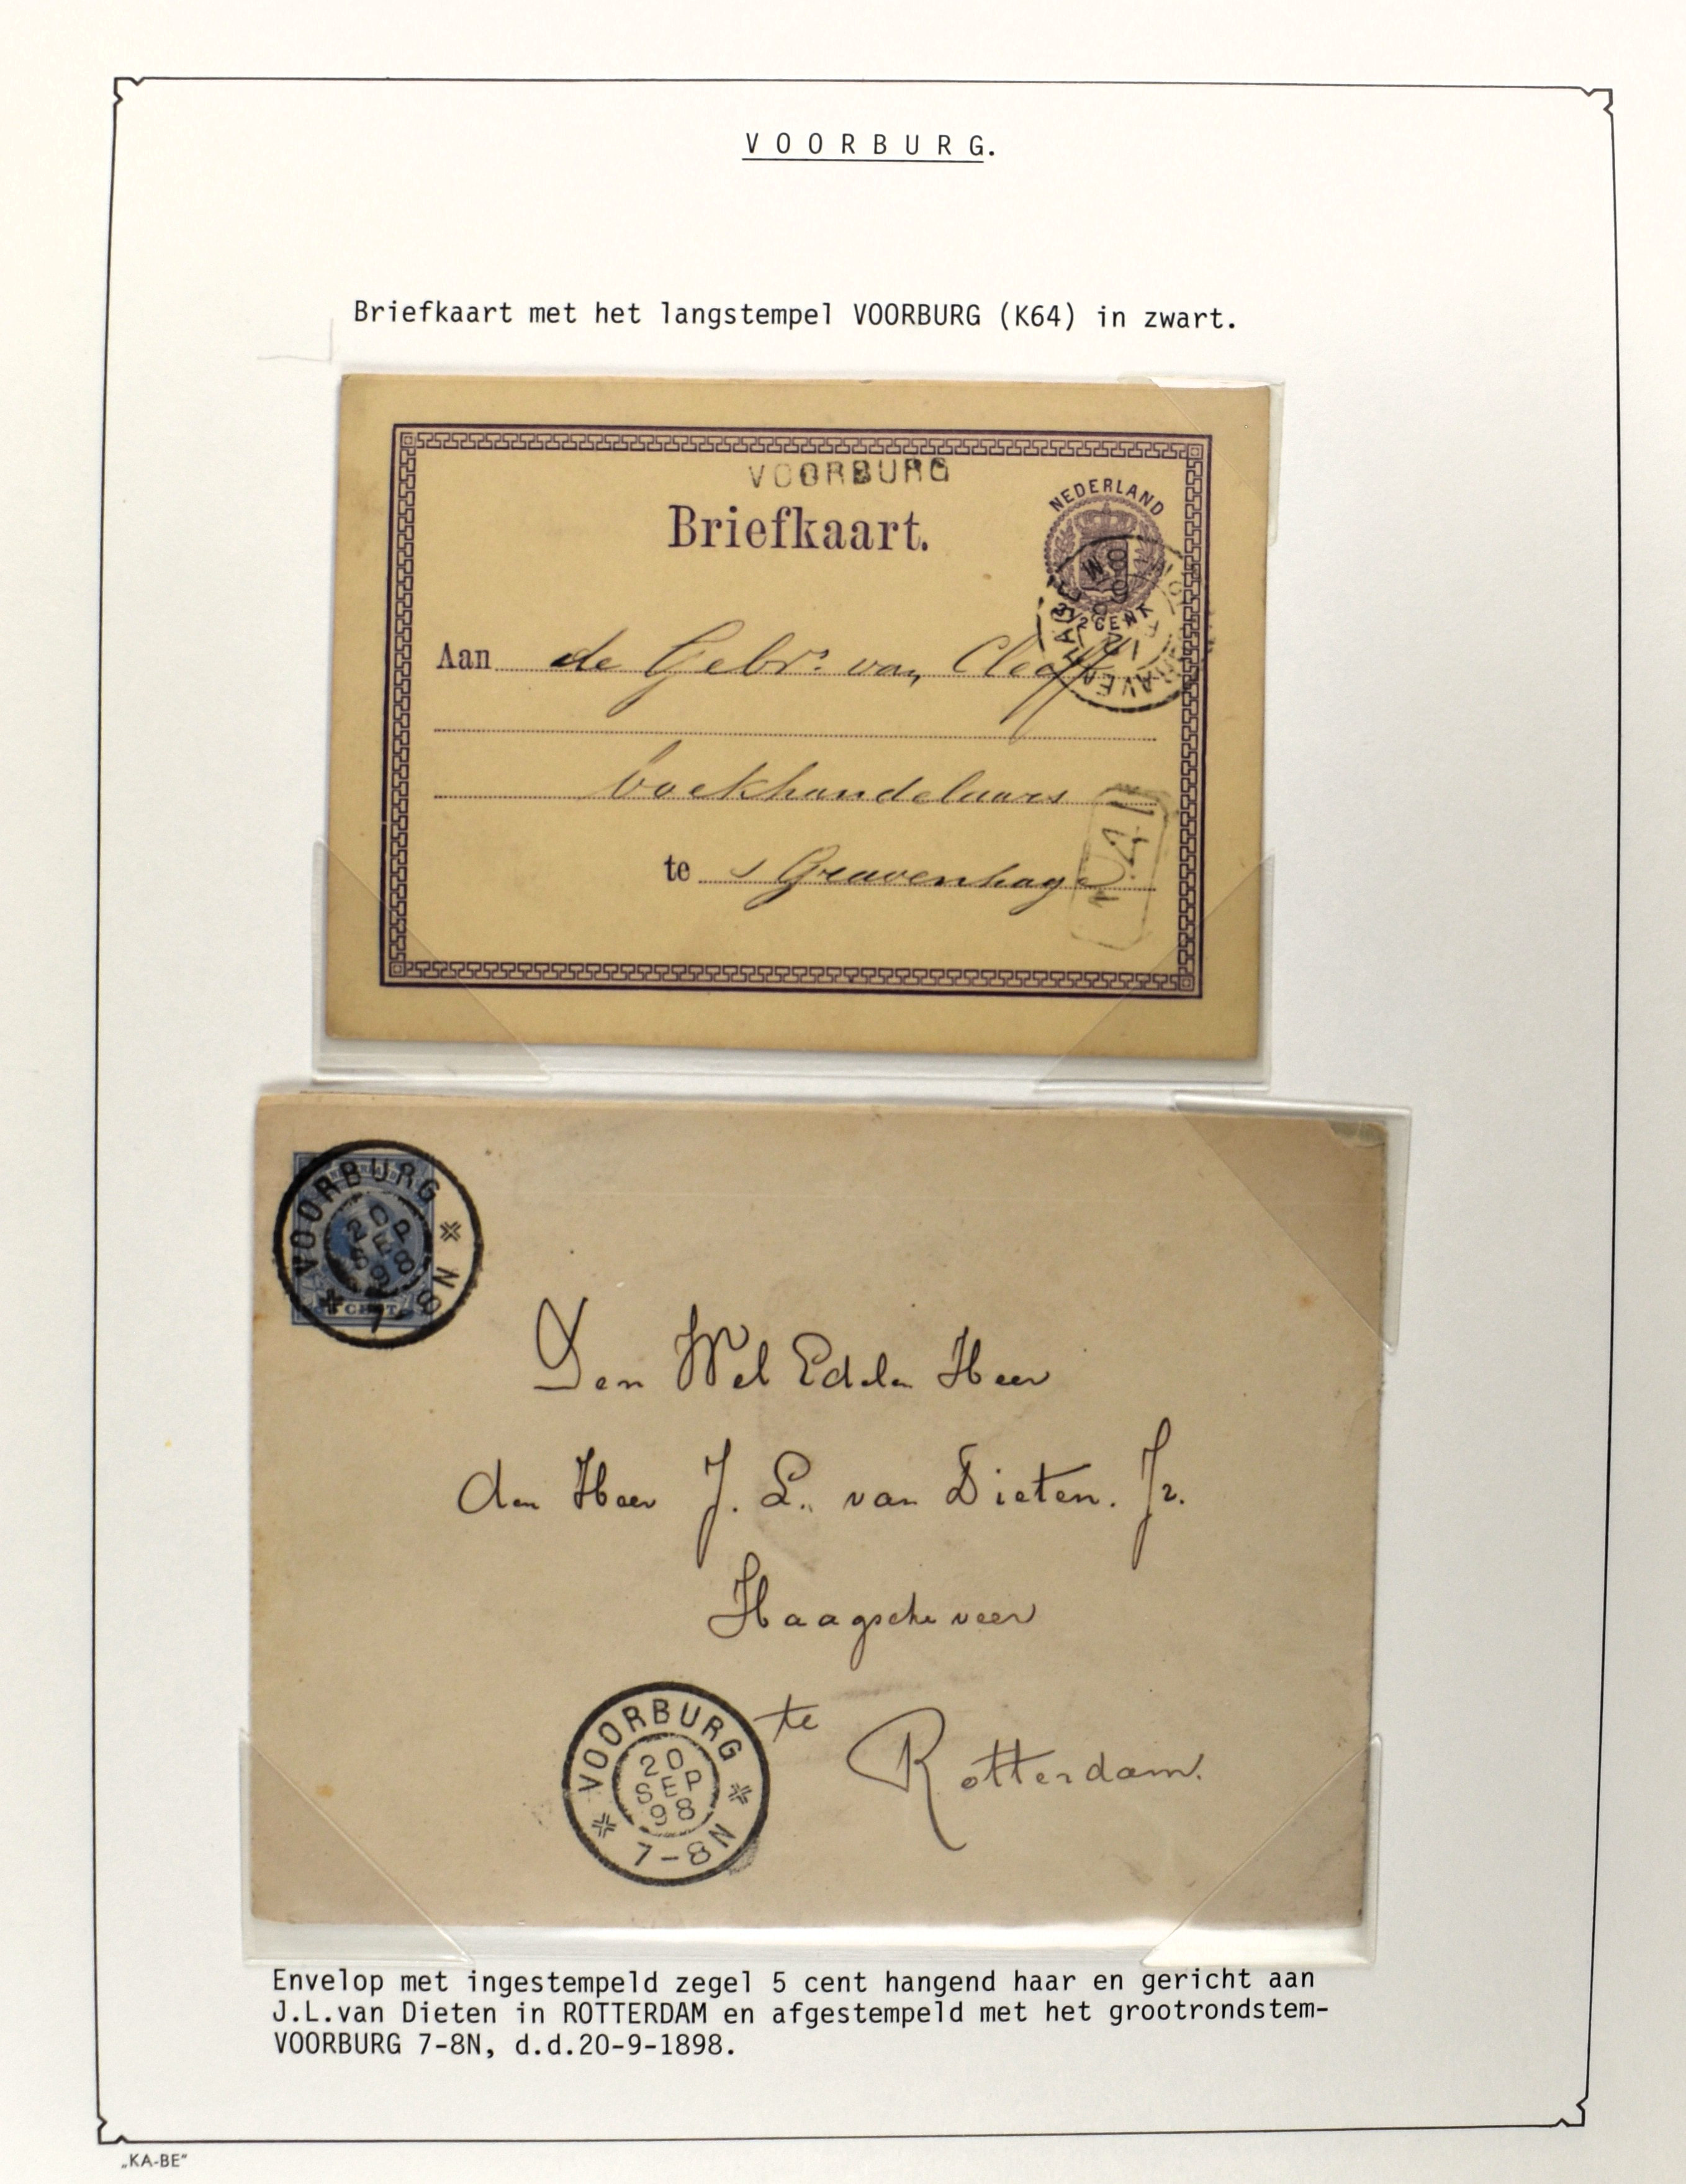 VOORBURG.
Briefkaart met het langstempel VOORBURG (K64) in zwart.
VOORBURG
Briefkaart.
NEDERLAND
2 1/2 CENT
Aan de Gebrs. van Cleeff
boekhandelaars
te s Gravenhage
VOORBURG
20 SEP 98
7-8N
5 CENT
Den Wel Edelen Heer
den Heer J. L. van Dieten. Jr.
Haagscheveer
te Rotterdam.
VOORBURG
20 SEP 98
7-8N
Envelop met ingestempeld zegel 5 cent hangend haar en gericht aan
J.L.van Dieten in ROTTERDAM en afgestempeld met het grootrondstem-
VOORBURG 7-8N, d.d.20-9-1898.
„KA-BE"